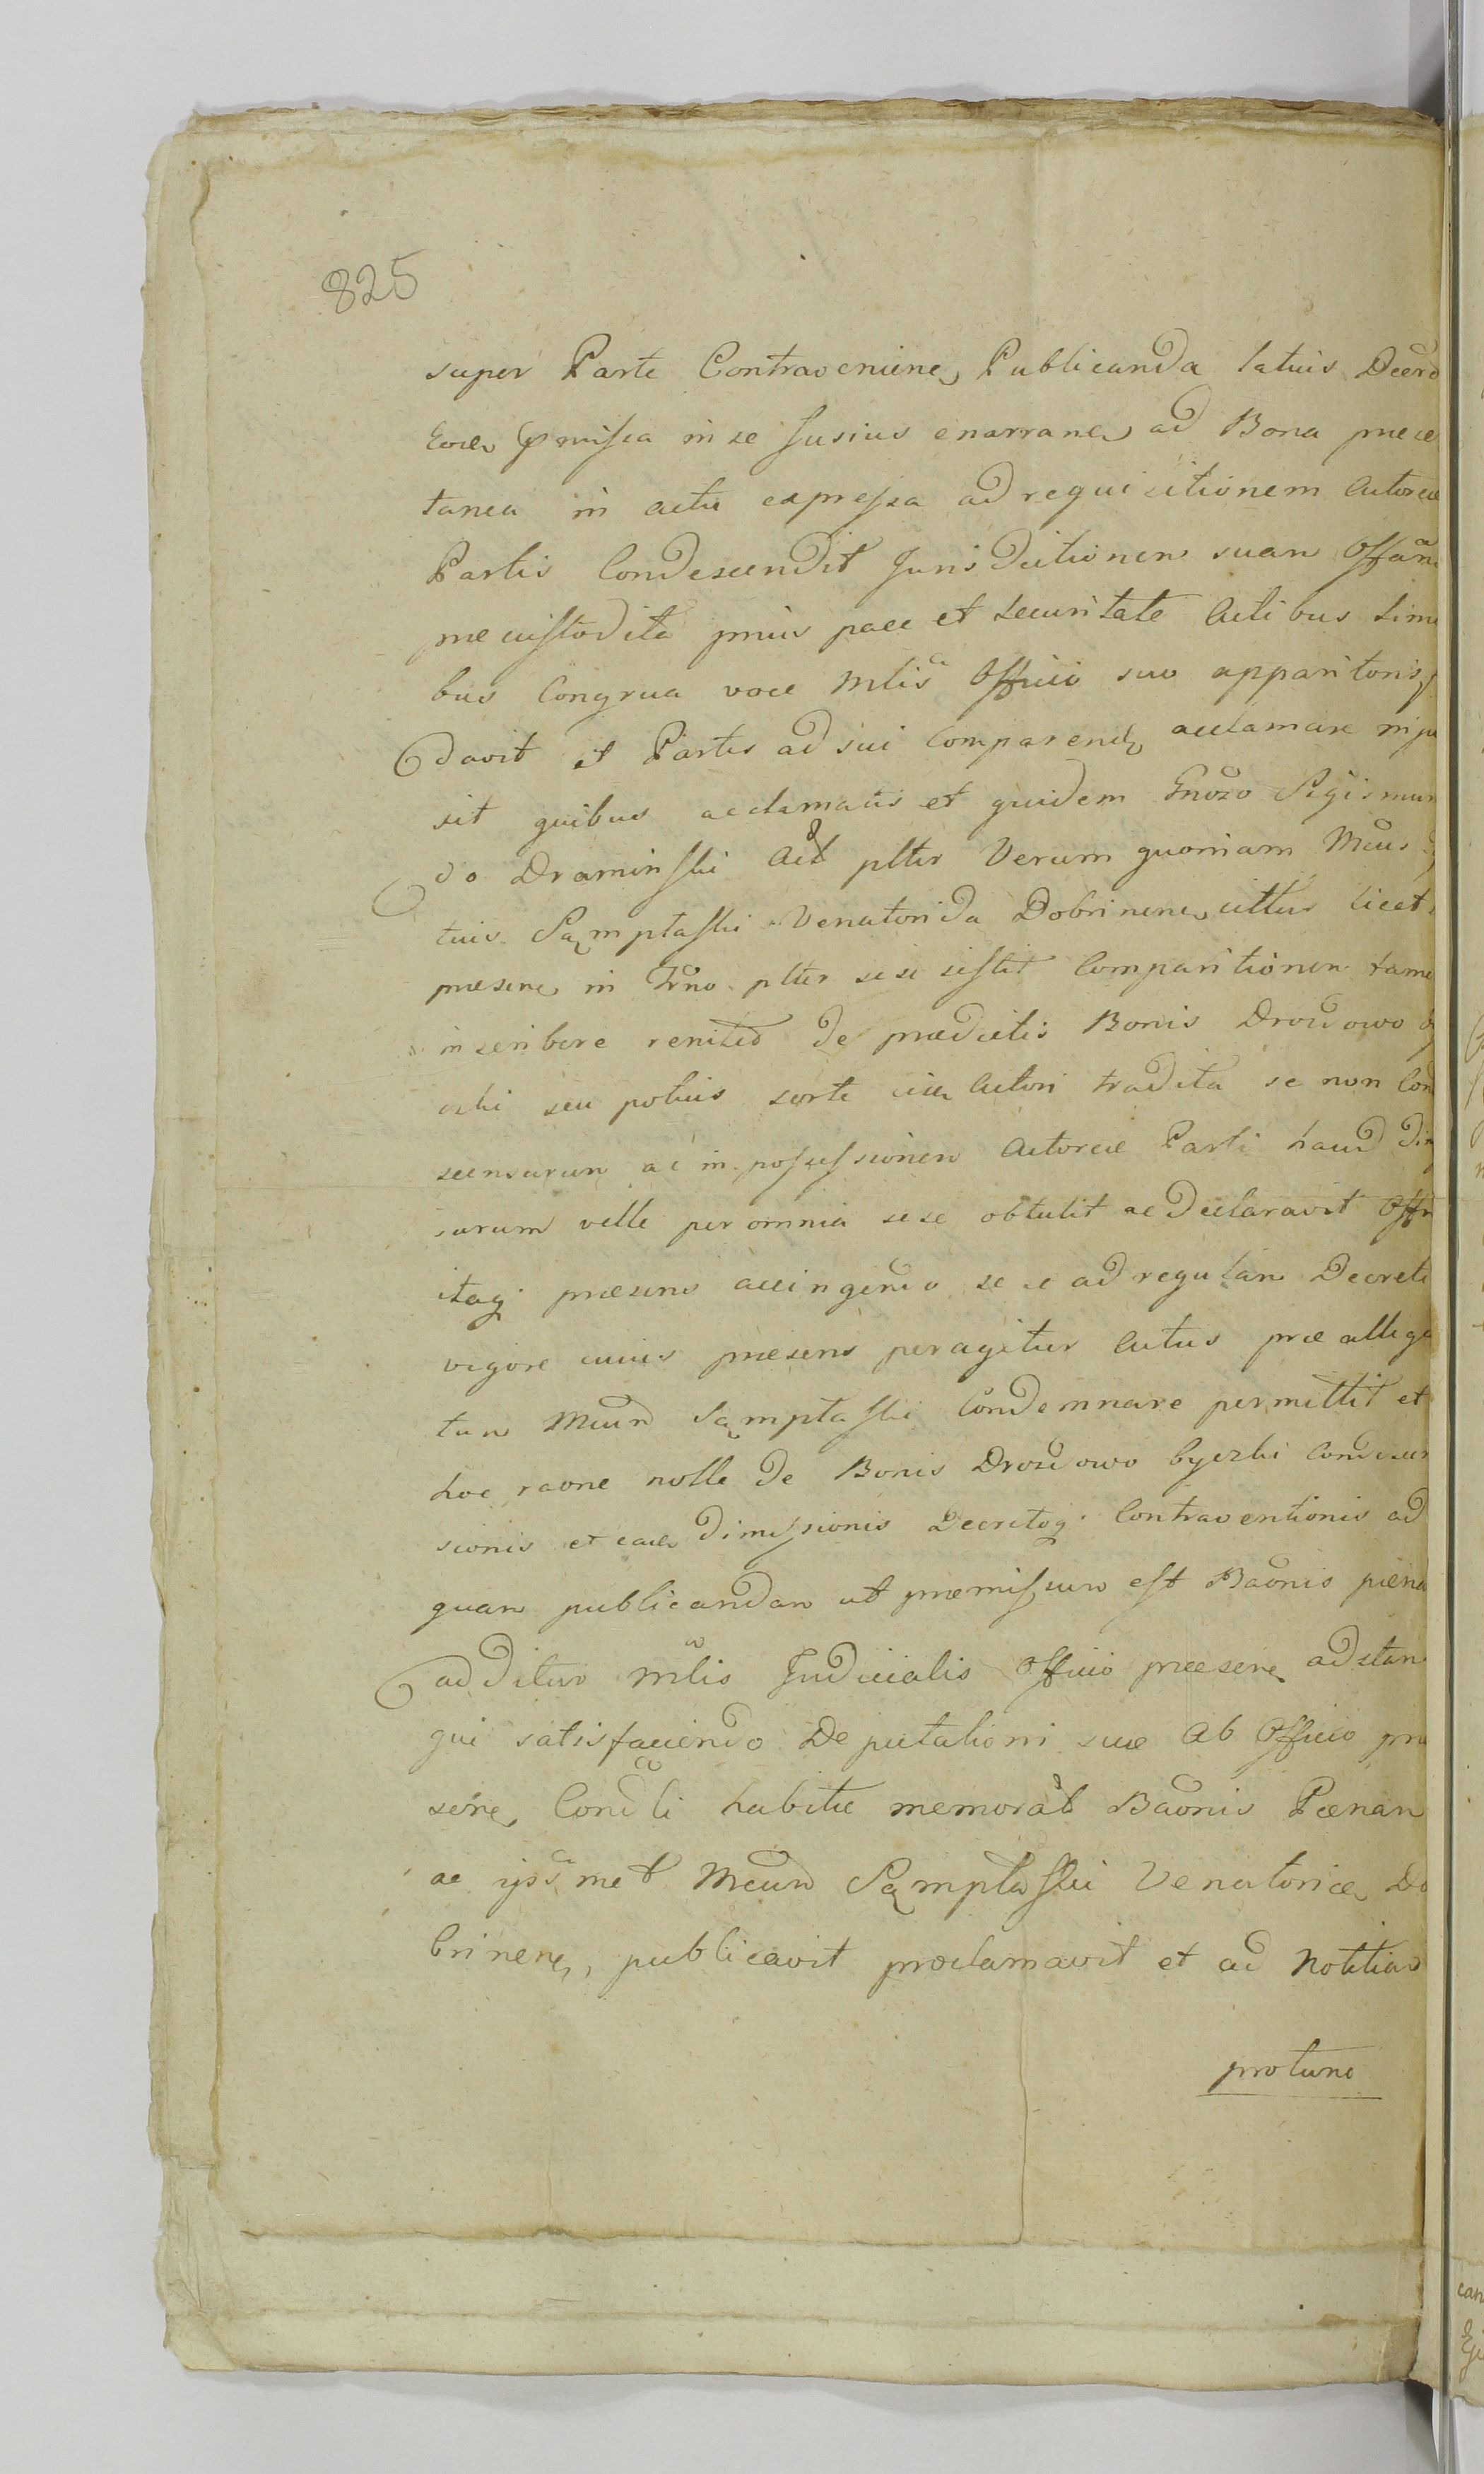 825
super Parte Contravenien, Publicanda latius Decre
præmissa in se fusius enarran, ad Bona præcu
tanea in actu expressa ad requisitionem Actoreæ
Partis Condescendit Jurisdictionem suam Offan
præcustodita prius pace et securitate Actibus simi
bus Congrua voce Mtlis Officio suo apparitoris
davit et Partes ad sui Comparend, acclamare inju
sit quibus acclamatis et quidem Gnoso Sigismun
do Draminski Act pltr Verum quoniam Mcus
tuis Sąmptaski Venatorida Dobrinen, citus licet
præsen, in Trno pltr sese sistit Comparitionem tame
inscribere renited de prædictis Bonis Drozdowo
seu potius sorte Actori tradita se non Con
scensurum ac in possessionem Actoreæ Parti haud dim
surum velle per omnia sese obtulit ac declaravit Offi
itaq præsens accingendo sese ad regulam Decreti
vigore cuius præsens peragitur Actus præallega
tum Mcum Sąmptaski Condemnare permittit et
hoc raone nolle de Bonis Drozdowo byczki Condescen
sionis et eaer dimissionis Decretoq Contraventionis ad
quam publicandam ut præmissum est Baonis pæna
additur Mtlis Judicialis Officio præsen, adstan
qui satisfaciendo Deputationi suæ ab Officio præ
sen, Condli habitæ memorat Baonis Pænam
ac ipsmet Mcum Sąmptaski Venatoricæ Do
brinen, publicavit proclamavit et ad Notitiam
protunc